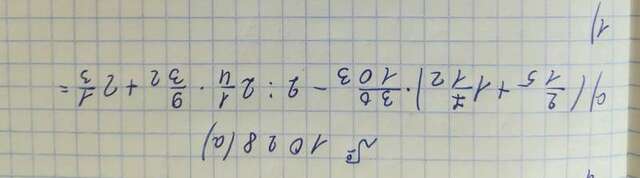 № 1028(а)
а) (2/15 + 1 7/12) · 30/103 − 2 : 2 1/4 · 9/32 + 2 1/3 =
1)